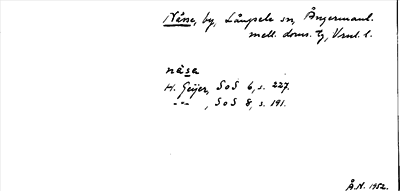 Näse, by, Långsele sn, Ångermanl.
mell. doms. tg, Vrml. l.
näsa
H. Geijer, SoS 6, s. 227.
-"- , SoS 8, s. 191.
Å.N. 1952.